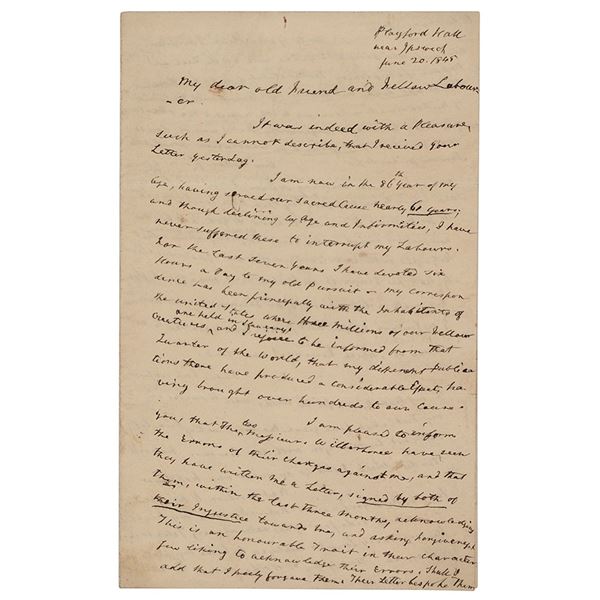 Playford Hall
near Ipswich
June 20. 1845
My dear old Friend and Fellow Labour-
-er
It was indeed with a Pleasure,
such as I cannot describe, that I received your
Letter yesterday.
I am now in the 86th Year of my
Age, having served our sacred Cause nearly 61 Years;
and though declining by Age and Infirmities, I have
never suffered these to interrupt my Labours.
For the last seven years I have devoted six
Hours a Day to my old Pursuit & my correspon
dence has been principally with the Inhabitants of
the united States where three Millions of our Fellow
Creatures are held in Slavery, and I rejoice to be informed from that
Quarter of the World, that my different Publica
tions there have produced a considerable Effect, ha
ving brought over hundreds to our Cause.
I am pleased to inform
you, that the two Messieurs Wilberforce have seen
the Errors of their Charges against me, and that
they have written me a Letter, signed by both of
them, within the last three months, acknowledging
their Injustice towards me, and asking forgiveness.
This is an honourable Trait in their Character
few liking to acknowledge their Errors. Shall I
add that I freely forgave them. Their Letter bespoke them